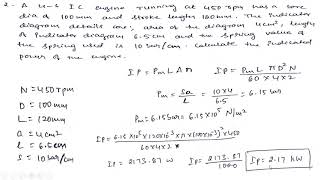 2- A 4-S IC engine running at 450 rpm has a bore
dia of 100mm and stroke length 120mm. The indicator
diagram details are; area of the diagram 4cm², length
of indicator diagram 6.5cm and the spring value of
the spring used is 10 bar/cm. Calculate the indicated
power of the engine.
IP = Pm L A n
IP = Pm L π D² N
60×4×2
N = 450 rpm
D = 100mm
L = 120mm
a = 4cm²
l = 6.5cm
S = 10 bar/cm
Pm = Sa = 10×4 = 6.15 bar
l 6.5
Pm = 6.15 bar = 6.15×10⁵ N/m²
IP = 6.15×10⁵×(120×10⁻³)×π×(100×10⁻³)²×450
60×4×2
IP = 2173.87 W
IP = 2173.87
1000
IP = 2.17 kW